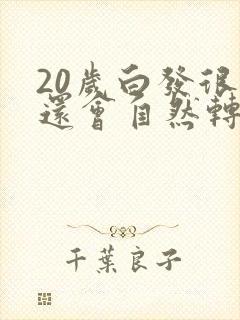 20歲白發很
還會自然轉
千葉良子